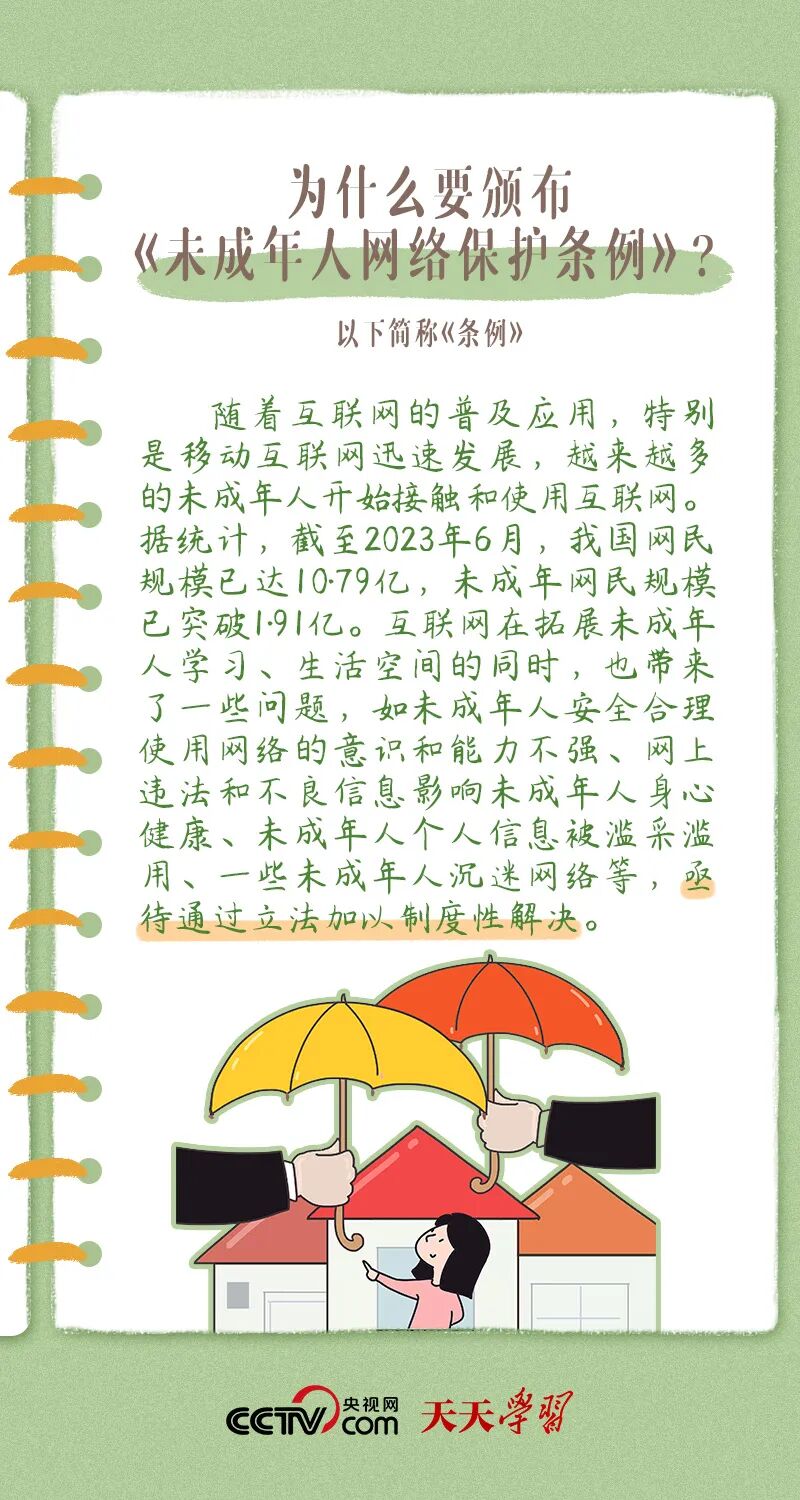 为什么要颁布
《未成年人网络保护条例》?
以下简称《条例》
随着互联网的普及应用，特别
是移动互联网迅速发展，越来越多
的未成年人开始接触和使用互联网。
据统计，截至2023年6月，我国网民
规模已达10.79亿，未成年网民规模
已突破1.91亿。互联网在拓展未成年
人学习、生活空间的同时，也带来
了一些问题，如未成年人安全合理
使用网络的意识和能力不强、网上
违法和不良信息影响未成年人身心
健康、未成年人个人信息被滥采滥
用、一些未成年人沉迷网络等，亟
待通过立法加以制度性解决。
CCTV.com 央视网 天天学習